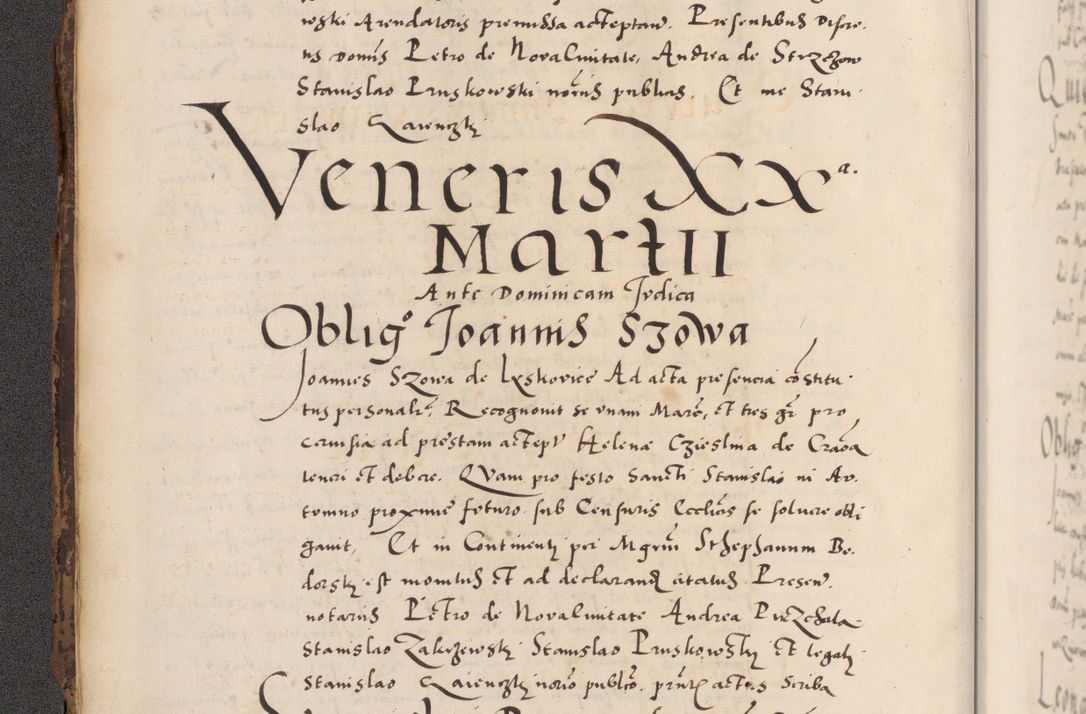 wski Arendatoris premissa acceptan. Presentibus Discre.
tis Dominis Petro de Nova Civitate, Andrea de Strzezow
Stanislao Pruskowski notariis publicis. Et me Stani
slao
Veneris XXa.
Martii
Ante Dominicam Judica
Obligo Joannis Szowa
Joannes Szowa de Lyskovice Ad acta presencia constitu
tus personaliter, Recognovit se unam Marcam, et tres gr pro
cervisia ad prestam accept Helenae Czieslina de Cracoa
teneri et debere. Quam pro festo Sancti Stanislai in Au.
tumno proxime futuro sub Censuris Ecclicis se solvere obli
gavit, Et in Continenti per Mgrum Stephanum Bo.
dorski est monitus et ad declarand citatus. Presen.
notariis Petro de Nova Civitate Andrea Przechala
Stanislao Zakrzewski Stanislao Pruskowski et legali
Stanislao notario publico. pnti actus Scriba